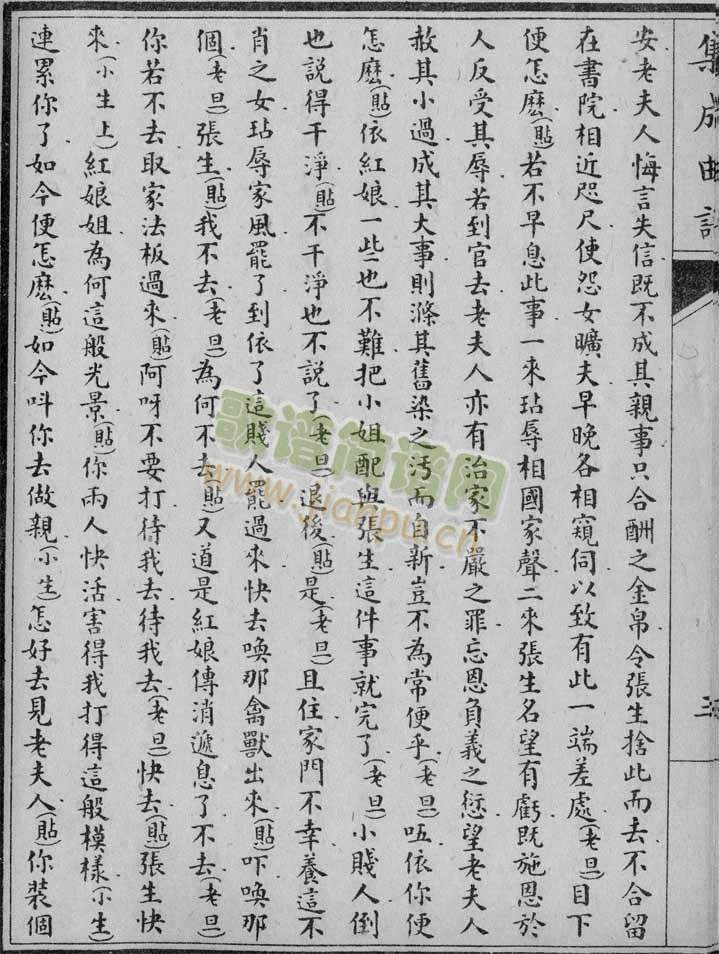 集成曲譜
三
安老夫人悔言失信既不成其親事只合酬之金帛令張生捨此而去不合留
在書院相近咫尺使怨女曠夫早晚各相窺伺以致有此一端差處(老旦)目下
便怎麽(貼)若不早息此事一來玷辱相國家聲二來張生名望有虧既施恩於
人反受其辱若到官去老夫人亦有治家不嚴之罪忘恩負義之愆望老夫人
赦其小過成其大事則滌其舊染之污而自新豈不為常便乎(老旦)㕶依你便
怎麽(貼)依紅娘一些也不難把小姐配與張生這件事就完了(老旦)小賤人倒
也説得干淨(貼)不干淨也不説了(老旦)退後(貼)是(老旦)且住家門不幸養這不
肖之女玷辱家風罷了到依了這賤人罷過來快去喚那禽獸出來(貼)吓喚那
個(老旦)張生(貼)我不去(老旦)為何不去(貼)又道是紅娘傳消遞息了不去(老旦)
你若不去取家法板過來(貼)阿呀不要打待我去待我去(老旦)快去(貼)張生快
來(小生上)紅娘姐為何這般光景(貼)你兩人快活害得我打得這般模樣(小生)
連累你了如今便怎麽(貼)如今呌你去做親(小生)怎好去見老夫人(貼)你装個
歌谱简谱网
www.jianpu.cn